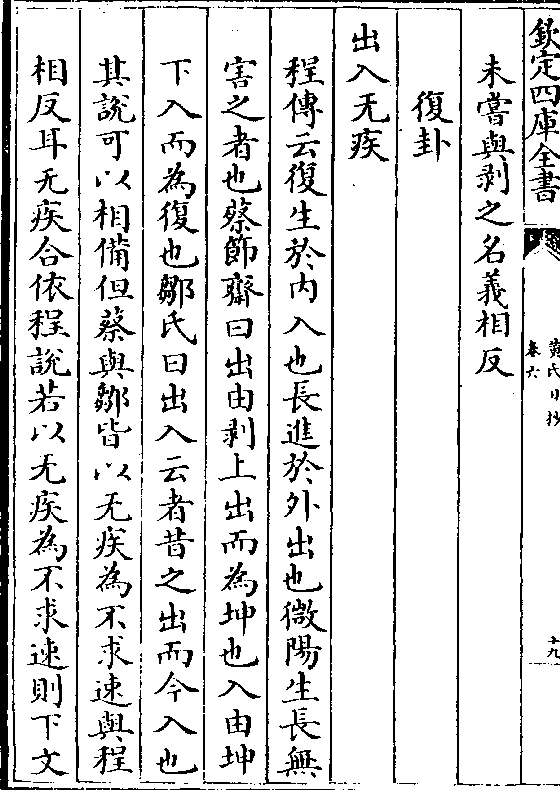 欽定四庫全書
黄氏日抄
卷六
十九
未嘗與剥之名義相反
復卦
出入无疾
程傳云復生於内入也長進於外出也微陽生長無
害之者也蔡節齋曰出由剥上出而為坤也入由坤
下入而為復也鄒氏曰出入云者昔之出而今入也
其說可以相備但蔡與鄒皆以无疾為不求速與程
相反耳无疾合依程說若以无疾為不求速則下文